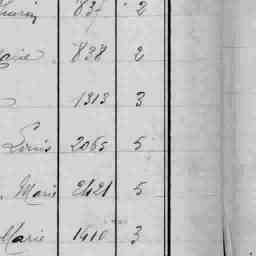 837 2
838 2
1313 3
Louis 2065 5
Marie 2421 5
Marie 1410 3